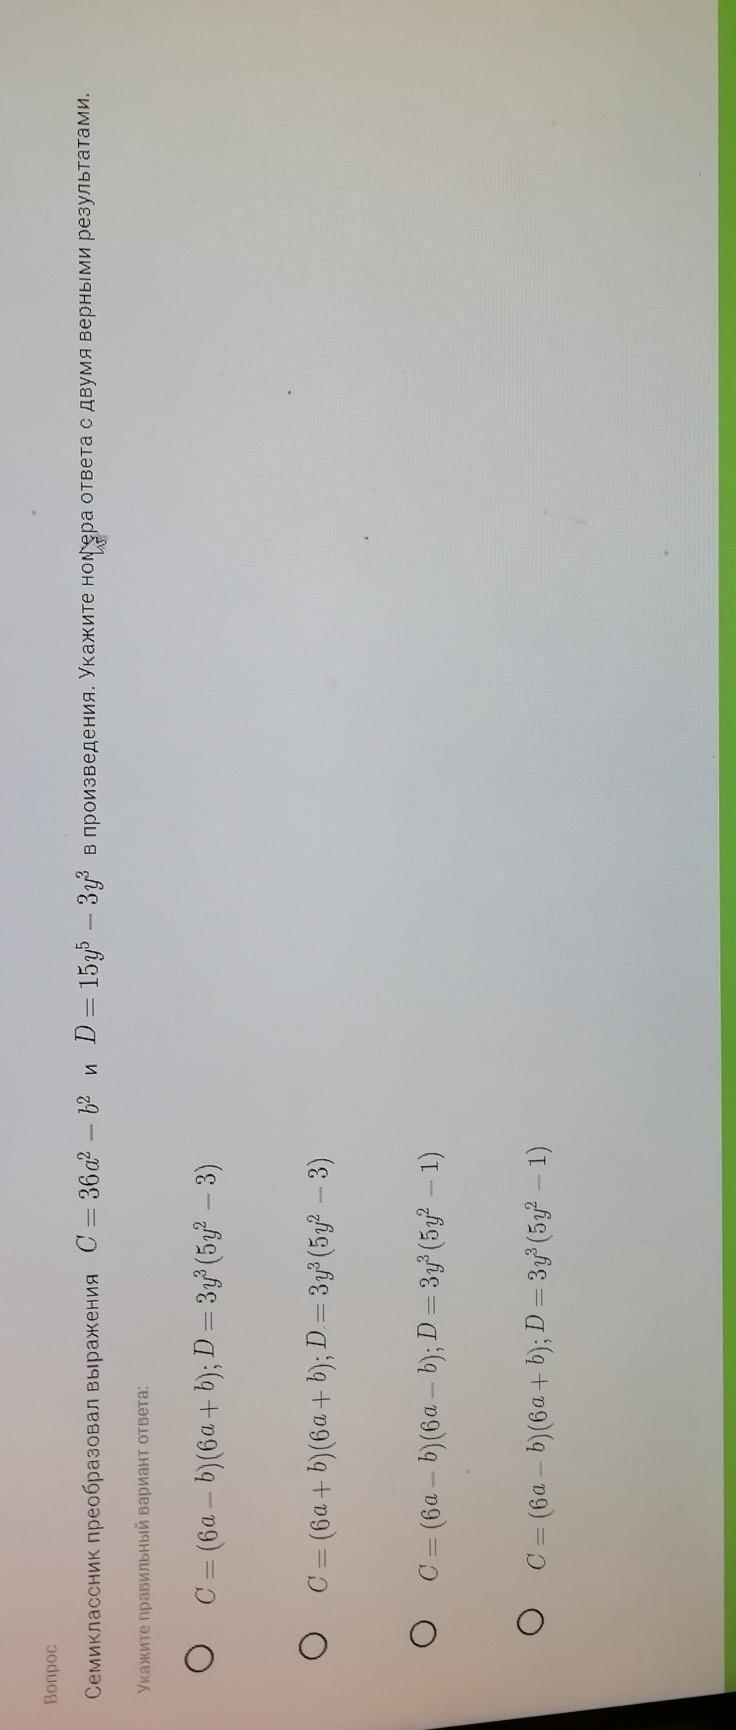 Вопрос
Семиклассник преобразовал выражения C = 36a² − b² и D = 15y⁵ − 3y³ в произведения. Укажите номера ответа с двумя верными результатами.
Укажите правильный вариант ответа:
C = (6a − b)(6a + b); D = 3y³(5y² − 3)
C = (6a + b)(6a + b); D = 3y³(5y² − 3)
C = (6a − b)(6a − b); D = 3y³(5y² − 1)
C = (6a − b)(6a + b); D = 3y³(5y² − 1)